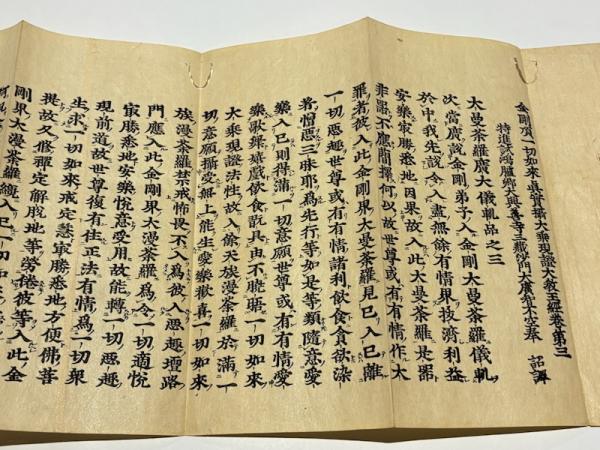 金剛頂一切如來真實攝大乘現證大教王經卷第三
特進試鴻臚卿大興善寺三藏沙門大廣智不空奉 詔譯
大曼荼羅廣大儀軌品之三
次當廣說金剛弟子入金剛大曼荼羅儀軌
於中我先說令入盡無餘有情界拔濟利益
安樂寂勝悉地因果故入此大曼荼羅是器
非器不應簡擇何以故世尊或有有情作大
罪者彼入此金剛界大曼荼羅見已入已離
一切惡趣世尊或有有情諸利飲食貪欲染
著憎惡三昧耶為先行等如是等類隨意愛
樂入已則得滿一切意願世尊或有有情愛
樂歌舞嬉戲飲食翫具由不曉晤一切如來
大乘現證法性故入餘天族漫荼羅於滿一
切意願攝受無上能生愛樂歡喜一切如來
族漫荼羅禁戒怖畏不入為彼入惡趣壇路
門應入此金剛界大漫荼羅為令一切適悅
寂勝悉地安樂悅意受用故能轉一切惡趣
現前道故世尊復有住正法有情為一切衆
生求一切如來戒定慧寂勝悉地方便佛菩
提故久修禪定解脫地等勞倦彼等入此金
剛界大漫荼羅纔入已一切如